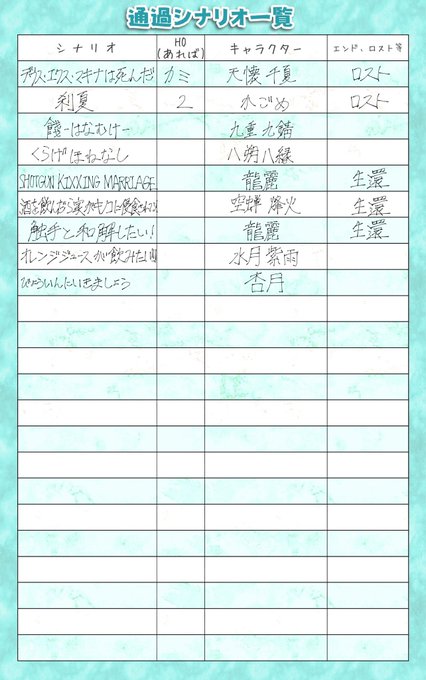 通過シナリオ一覧
シナリオ HO(あれば) キャラクター エンド、ロスト等
デウス・エクス・マキナは死んだ カミ 天懐 千夏 ロスト
刹夏 2 水ごめ ロスト
餞-はなむけ- 九重 九錆
くらげほねなし 八朔 八縁
SHOTGUN KIXXING MARRIAGE. 龍麗 生還
酒を飲んだら家がキノコに侵食されて 空蝉 烽火 生還
触手と和解したい! 龍麗 生還
オレンジジュースが飲みたい 水月 紫雨
びょういんにいきましょう 杏月